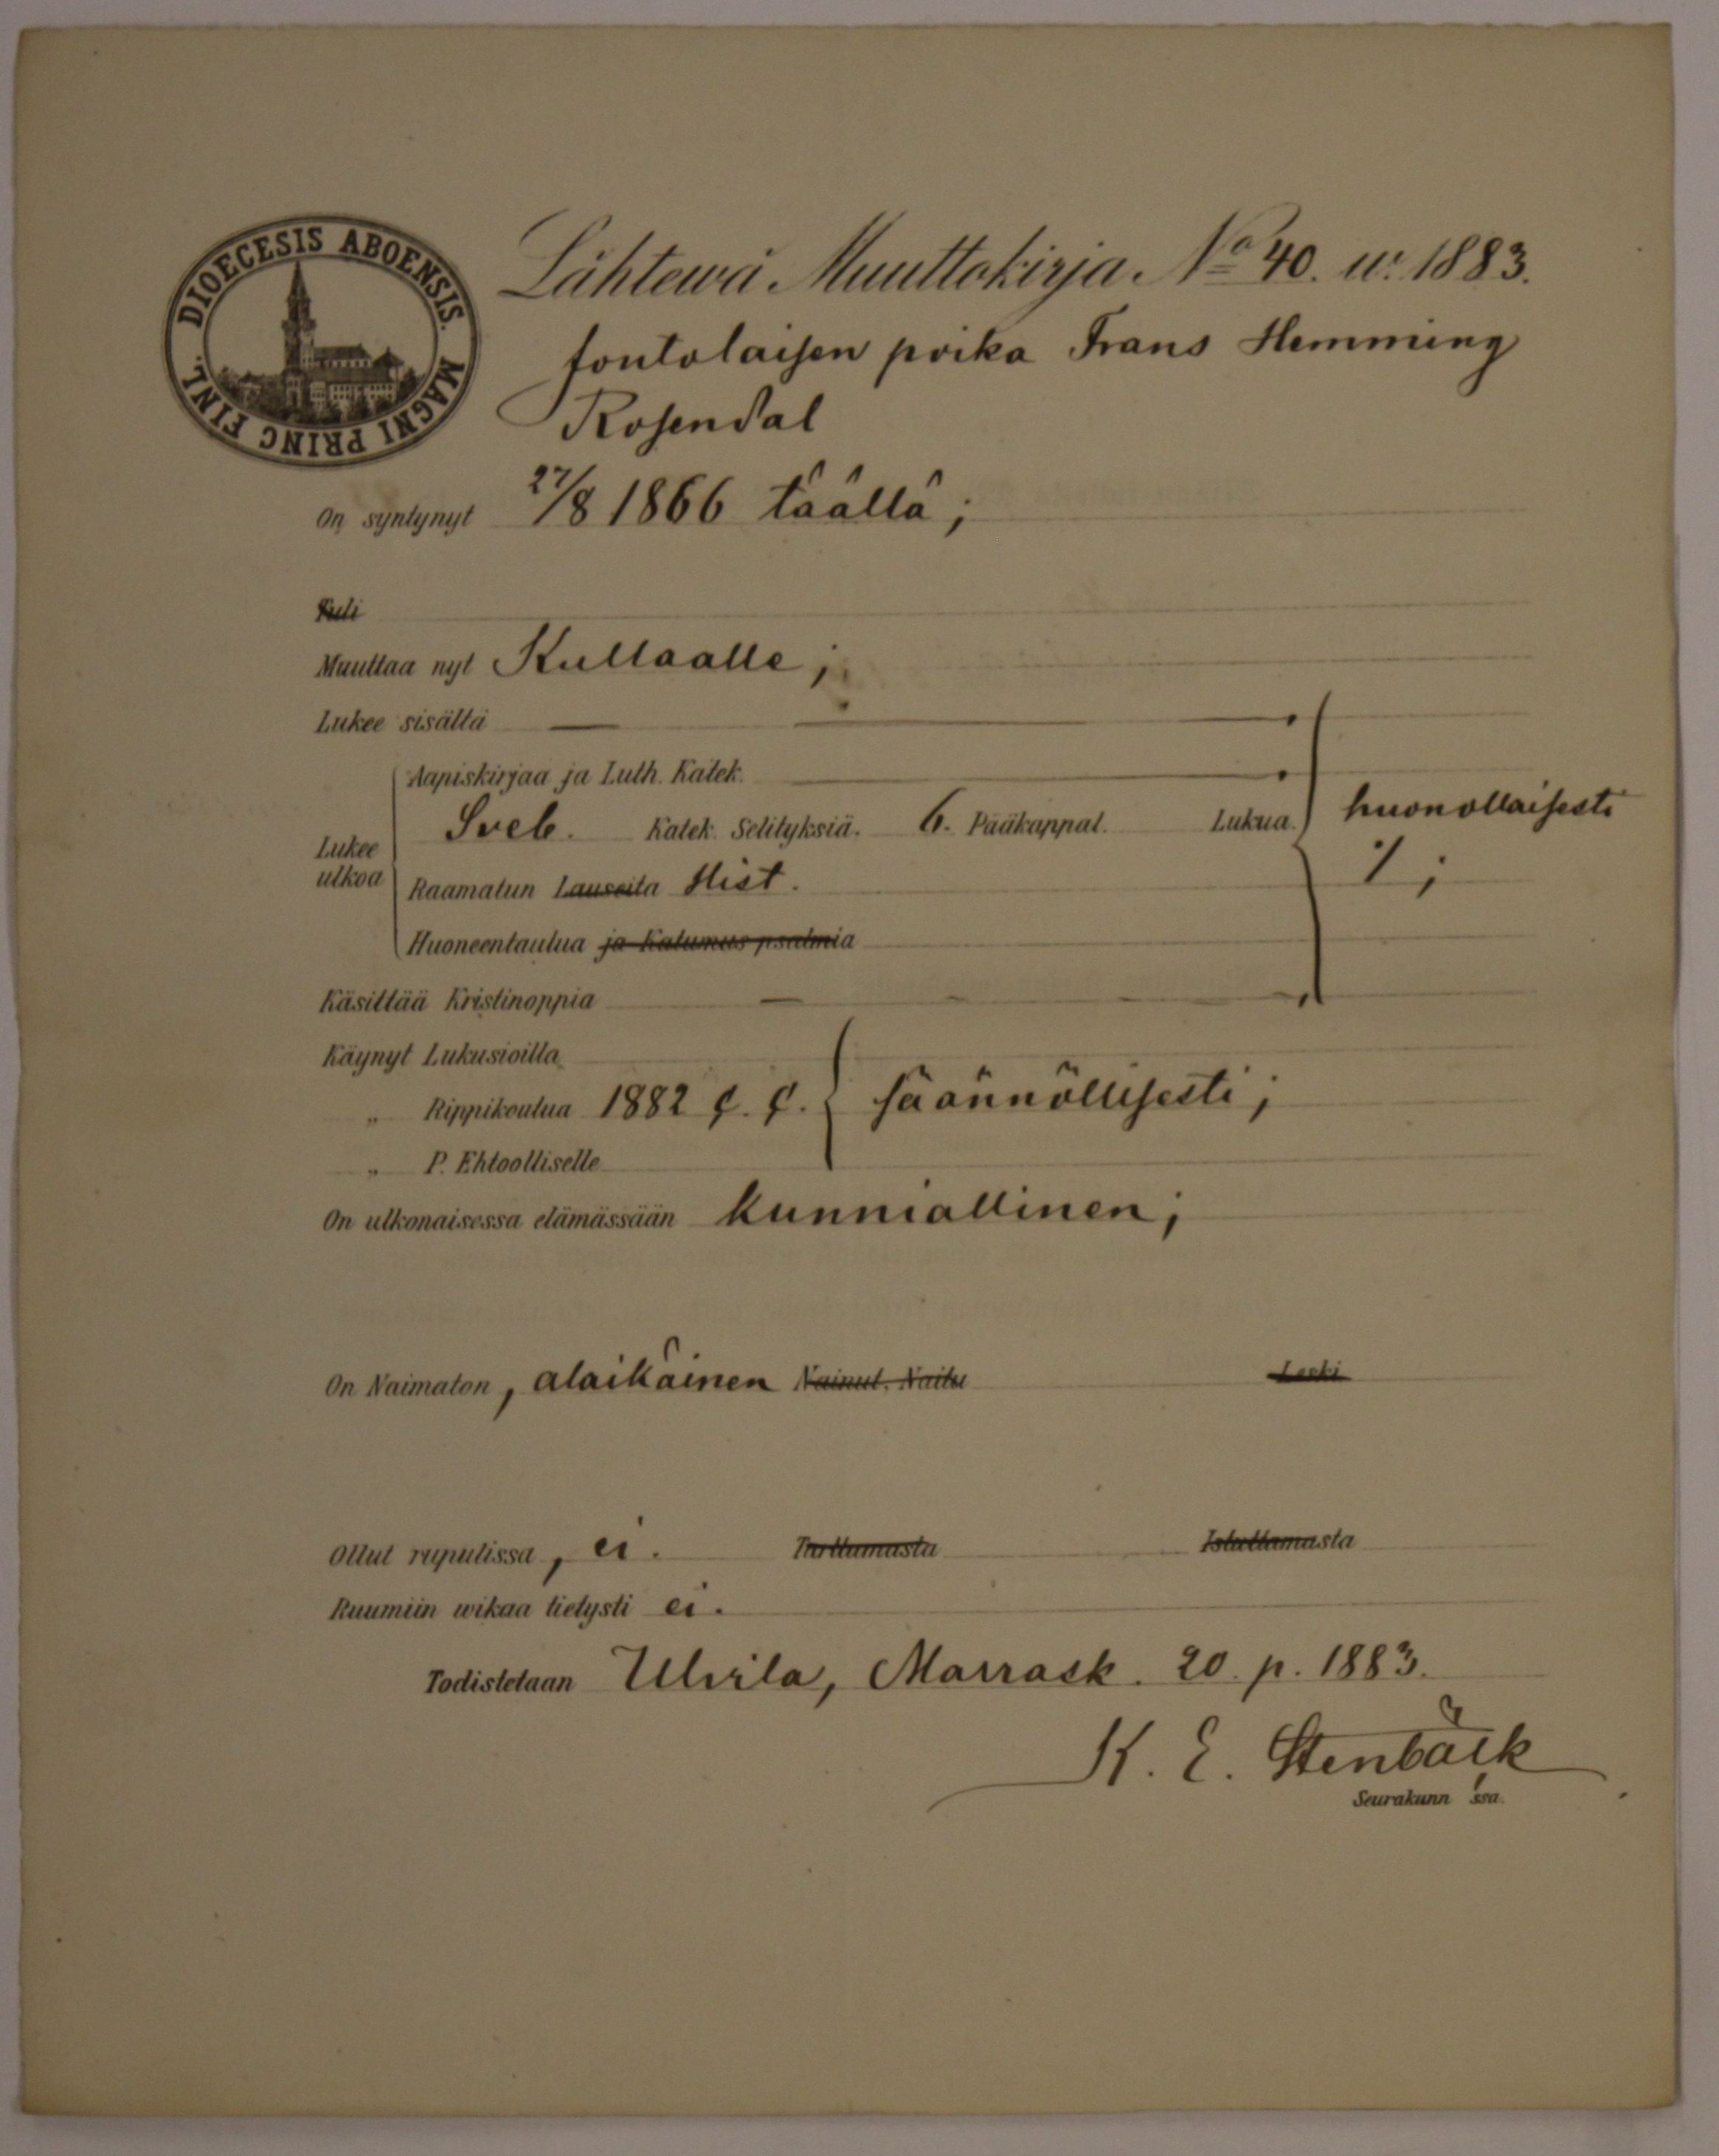 DIOECESIS ABOENSIS. MAGNI PRINC FINL.
Lähtewä Muuttokirja No 40. w. 1883.
sontolaisen poika Frans Hemming
Rosendal
On syntynyt 27/8 1866 täällä;
Tuli
Muuttaa nyt Kullaalle;
Lukee sisältä
Aapiskirjaa ja Luth. Katek.
Lukee ulkoa
Sveb. Katek. Selityksiä. 6. Pääkappal. Lukua. huonollaisesti
Raamatun Lauseita Hist. ٪;
Huoneentaulua ja Katumus psalmia
Käsittää Kristinoppia
Käynyt Lukusioilla
„ Rippikoulua 1882 säännöllisesti;
„ P. Ehtoolliselle
On ulkonaisessa elämässään kunniallinen;
On Naimaton, alaikäinen Nainut. Naitu Leski
Ollut rupulissa, ei. Tarttumasta Istuttamasta
Ruumiin wikaa tietysti ei.
Todistetaan Ulvila, Marrask. 20 p. 1883.
K. E. Stenbäck
Seurakunn ssa.